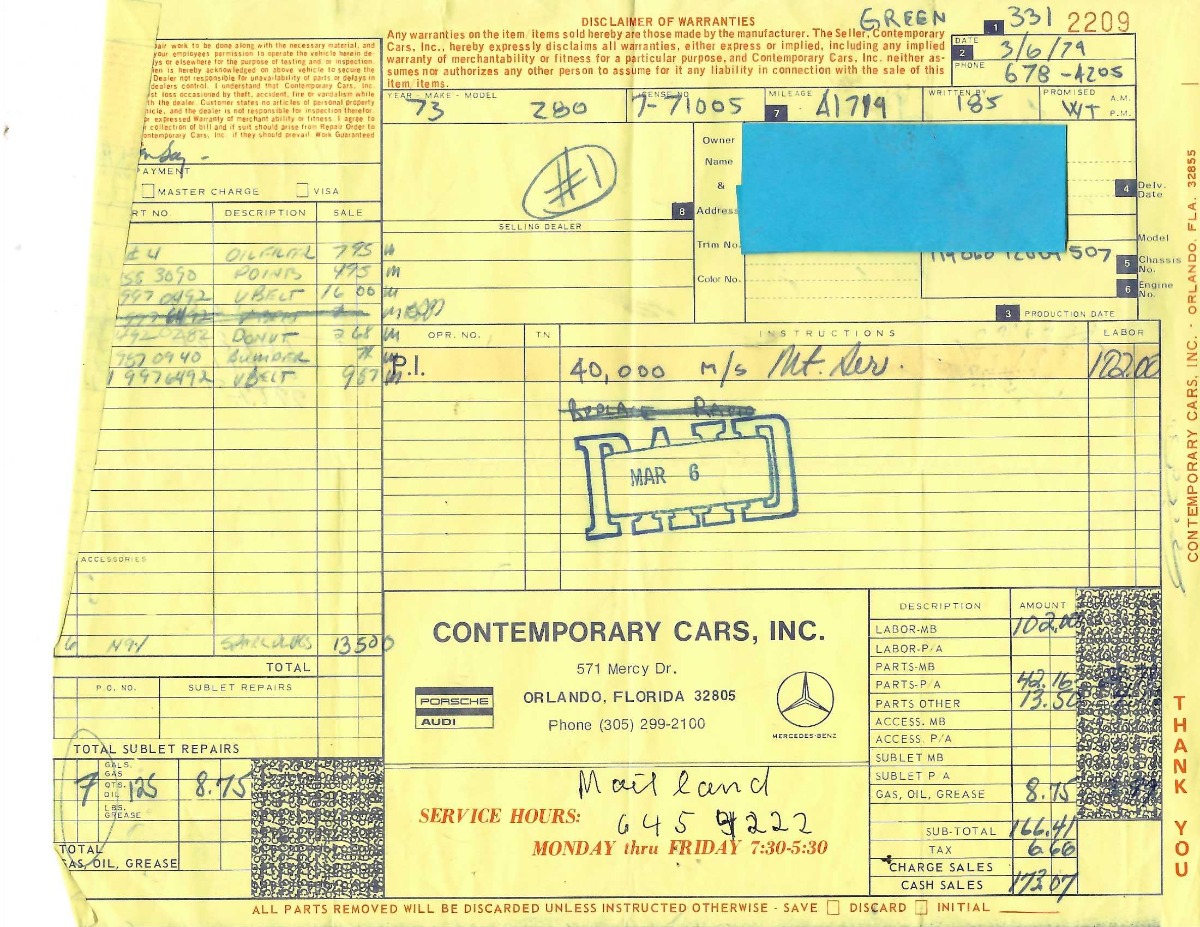 DISCLAIMER OF WARRANTIES
Any warranties on the item/items sold hereby are those made by the manufacturer. The Seller, Contemporary
Cars, Inc., hereby expressly disclaims all warranties, either express or implied, including any implied
warranty of merchantability or fitness for a particular purpose, and Contemporary Cars, Inc. neither as-
sumes nor authorizes any other person to assume for it any liability in connection with the sale of this
item/items.
GREEN
1 331 2209
DATE
2 3/6/79
PHONE
678-4205
pair work to be done along with the necessary material, and
your employees permission to operate the vehicle herein de-
ys or elsewhere for the purpose of testing and/or inspection.
en is hereby acknowledged on above vehicle to secure the
Dealer not responsible for unavailability of parts or delays in
dealers control. I understand that Contemporary Cars, Inc.
st loss occasioned by theft, accident, fire or vandalism while
th the dealer. Customer states no articles of personal property
icle, and the dealer is not responsible for inspection therefor.
r expressed Warranty of merchant ability or fitness. I agree to
collection of bill and if suit should arise from Repair Order to
ontemporary Cars, Inc. if they should prevail. Work Guaranteed
YEAR - MAKE - MODEL
73 280
7-71005
MILEAGE
7 41719
WRITTEN BY
185
PROMISED
WT
A.M.
P.M.
AYMENT
MASTER CHARGE VISA
#1
8
SELLING DEALER
Owner
Name
&
Address
Trim No.
Color No.
4 Delv. Date
Model
5 Chassis No.
507
6 Engine No.
3 PRODUCTION DATE
RT NO. DESCRIPTION SALE
#4 OIL FILTER 7 95 M
55 3090 POINTS 4 95 M
997 0492 V BELT 16 00 M
492 0282 DONUT 3 68 M
987 0940 BUMPER M
9976492 V BELT 9 57 M
ACCESSORIES
6 N9Y SPARK PLUGS 13 50
TOTAL
OPR. NO. TN INSTRUCTIONS LABOR
P.I. 40,000 m/s Mt. Ser. 102.00
REPLACE
PAID
MAR 6
P.O. NO. SUBLET REPAIRS
TOTAL SUBLET REPAIRS
GALS. GAS
7 QTS. OIL 125 8.75
LBS. GREASE
TOTAL
GAS, OIL, GREASE
CONTEMPORARY CARS, INC.
571 Mercy Dr.
ORLANDO, FLORIDA 32805
Phone (305) 299-2100
PORSCHE
AUDI
MERCEDES-BENZ
Maitland
SERVICE HOURS:
645 4222
MONDAY thru FRIDAY 7:30-5:30
DESCRIPTION AMOUNT
LABOR-MB 102.00
LABOR-P/A
PARTS-MB
PARTS-P/A 42.16
PARTS OTHER 13.50
ACCESS. MB
ACCESS. P/A
SUBLET MB
SUBLET P/A
GAS, OIL, GREASE 8.75
SUB-TOTAL 166.41
TAX 6.66
CHARGE SALES
CASH SALES 173.07
ALL PARTS REMOVED WILL BE DISCARDED UNLESS INSTRUCTED OTHERWISE - SAVE DISCARD INITIAL
CONTEMPORARY CARS, INC. - ORLANDO, FLA. 32855
THANK YOU